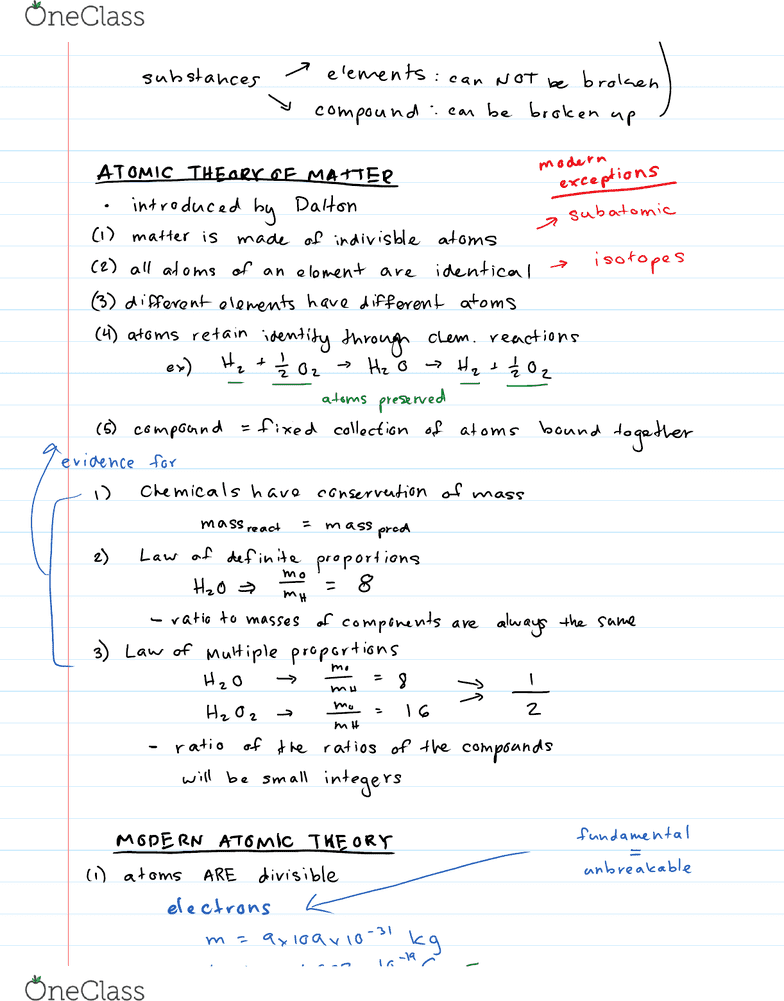 OneClass
substances → elements : can NOT be broken
↘ compound : can be broken up
ATOMIC THEORY OF MATTER
modern
exceptions
• introduced by Dalton
→ subatomic
(1) matter is made of indivisble atoms
(2) all atoms of an element are identical → isotopes
(3) different elements have different atoms
(4) atoms retain identity through chem. reactions
ex) H₂ + ½ O₂ → H₂O → H₂ + ½ O₂
atoms preserved
(5) compound = fixed collection of atoms bound together
evidence for
1) Chemicals have conservation of mass
mass react = mass prod
2) Law of definite proportions
H₂O ⇒ mO/mH = 8
- ratio to masses of components are always the same
3) Law of Multiple proportions
H₂O → mO/mH = 8
H₂O₂ → mO/mH = 16
⇒ 1/2
- ratio of the ratios of the compounds
will be small integers
MODERN ATOMIC THEORY
fundamental
=
unbreakable
(1) atoms ARE divisible
electrons
m = 9×109×10⁻³¹ kg
OneClass